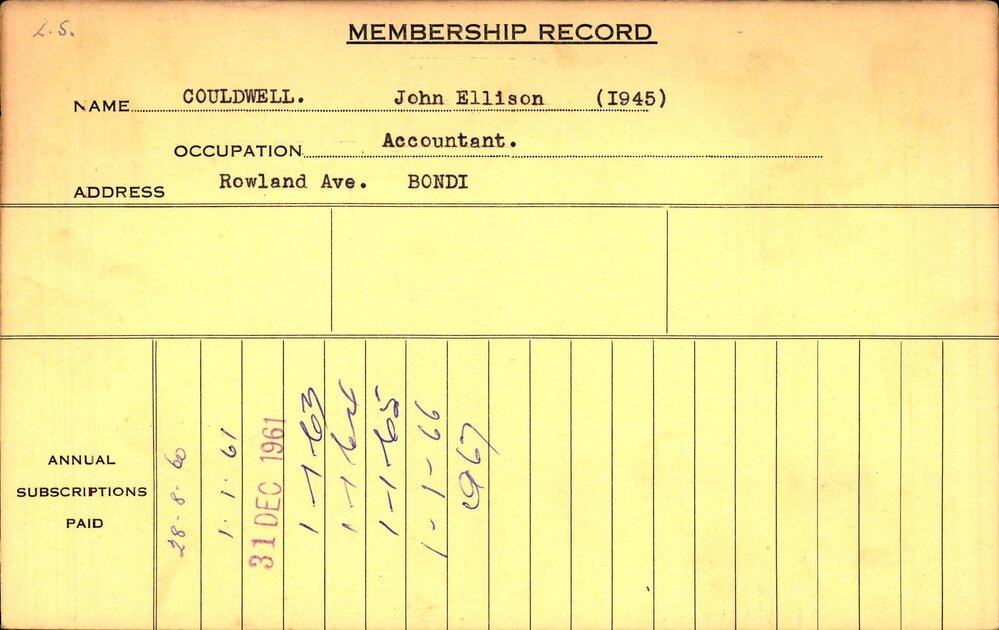 L.S.
MEMBERSHIP RECORD
NAME COULDWELL. John Ellison (I945)
OCCUPATION Accountant.
ADDRESS Rowland Ave. BONDI
ANNUAL
SUBSCRIPTIONS
PAID
28-8-60
1-1-61
31 DEC 1961
1-1-63
1-1-64
1-1-65
1-1-66
1967